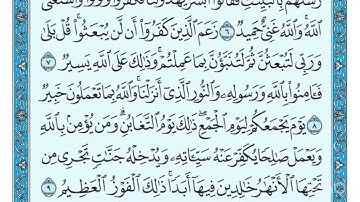 رُسُلُهُم بِٱلْبَيِّنَٰتِ فَقَالُوٓا۟ أَبَشَرٌ يَهْدُونَنَا فَكَفَرُوا۟ وَتَوَلَّوا۟ ۚ وَّٱسْتَغْنَى
ٱللَّهُ ۚ وَٱللَّهُ غَنِىٌّ حَمِيدٌ ٦ زَعَمَ ٱلَّذِينَ كَفَرُوٓا۟ أَن لَّن يُبْعَثُوا۟ ۚ قُلْ بَلَىٰ
وَرَبِّى لَتُبْعَثُنَّ ثُمَّ لَتُنَبَّؤُنَّ بِمَا عَمِلْتُمْ ۚ وَذَٰلِكَ عَلَى ٱللَّهِ يَسِيرٌ ٧
فَـَٔامِنُوا۟ بِٱللَّهِ وَرَسُولِهِۦ وَٱلنُّورِ ٱلَّذِىٓ أَنزَلْنَا ۚ وَٱللَّهُ بِمَا تَعْمَلُونَ خَبِيرٌ
٨ يَوْمَ يَجْمَعُكُمْ لِيَوْمِ ٱلْجَمْعِ ۖ ذَٰلِكَ يَوْمُ ٱلتَّغَابُنِ ۗ وَمَن يُؤْمِنۢ بِٱللَّهِ
وَيَعْمَلْ صَٰلِحًا يُكَفِّرْ عَنْهُ سَيِّـَٔاتِهِۦ وَيُدْخِلْهُ جَنَّٰتٍ تَجْرِى مِن
تَحْتِهَا ٱلْأَنْهَٰرُ خَٰلِدِينَ فِيهَآ أَبَدًا ۚ ذَٰلِكَ ٱلْفَوْزُ ٱلْعَظِيمُ ٩